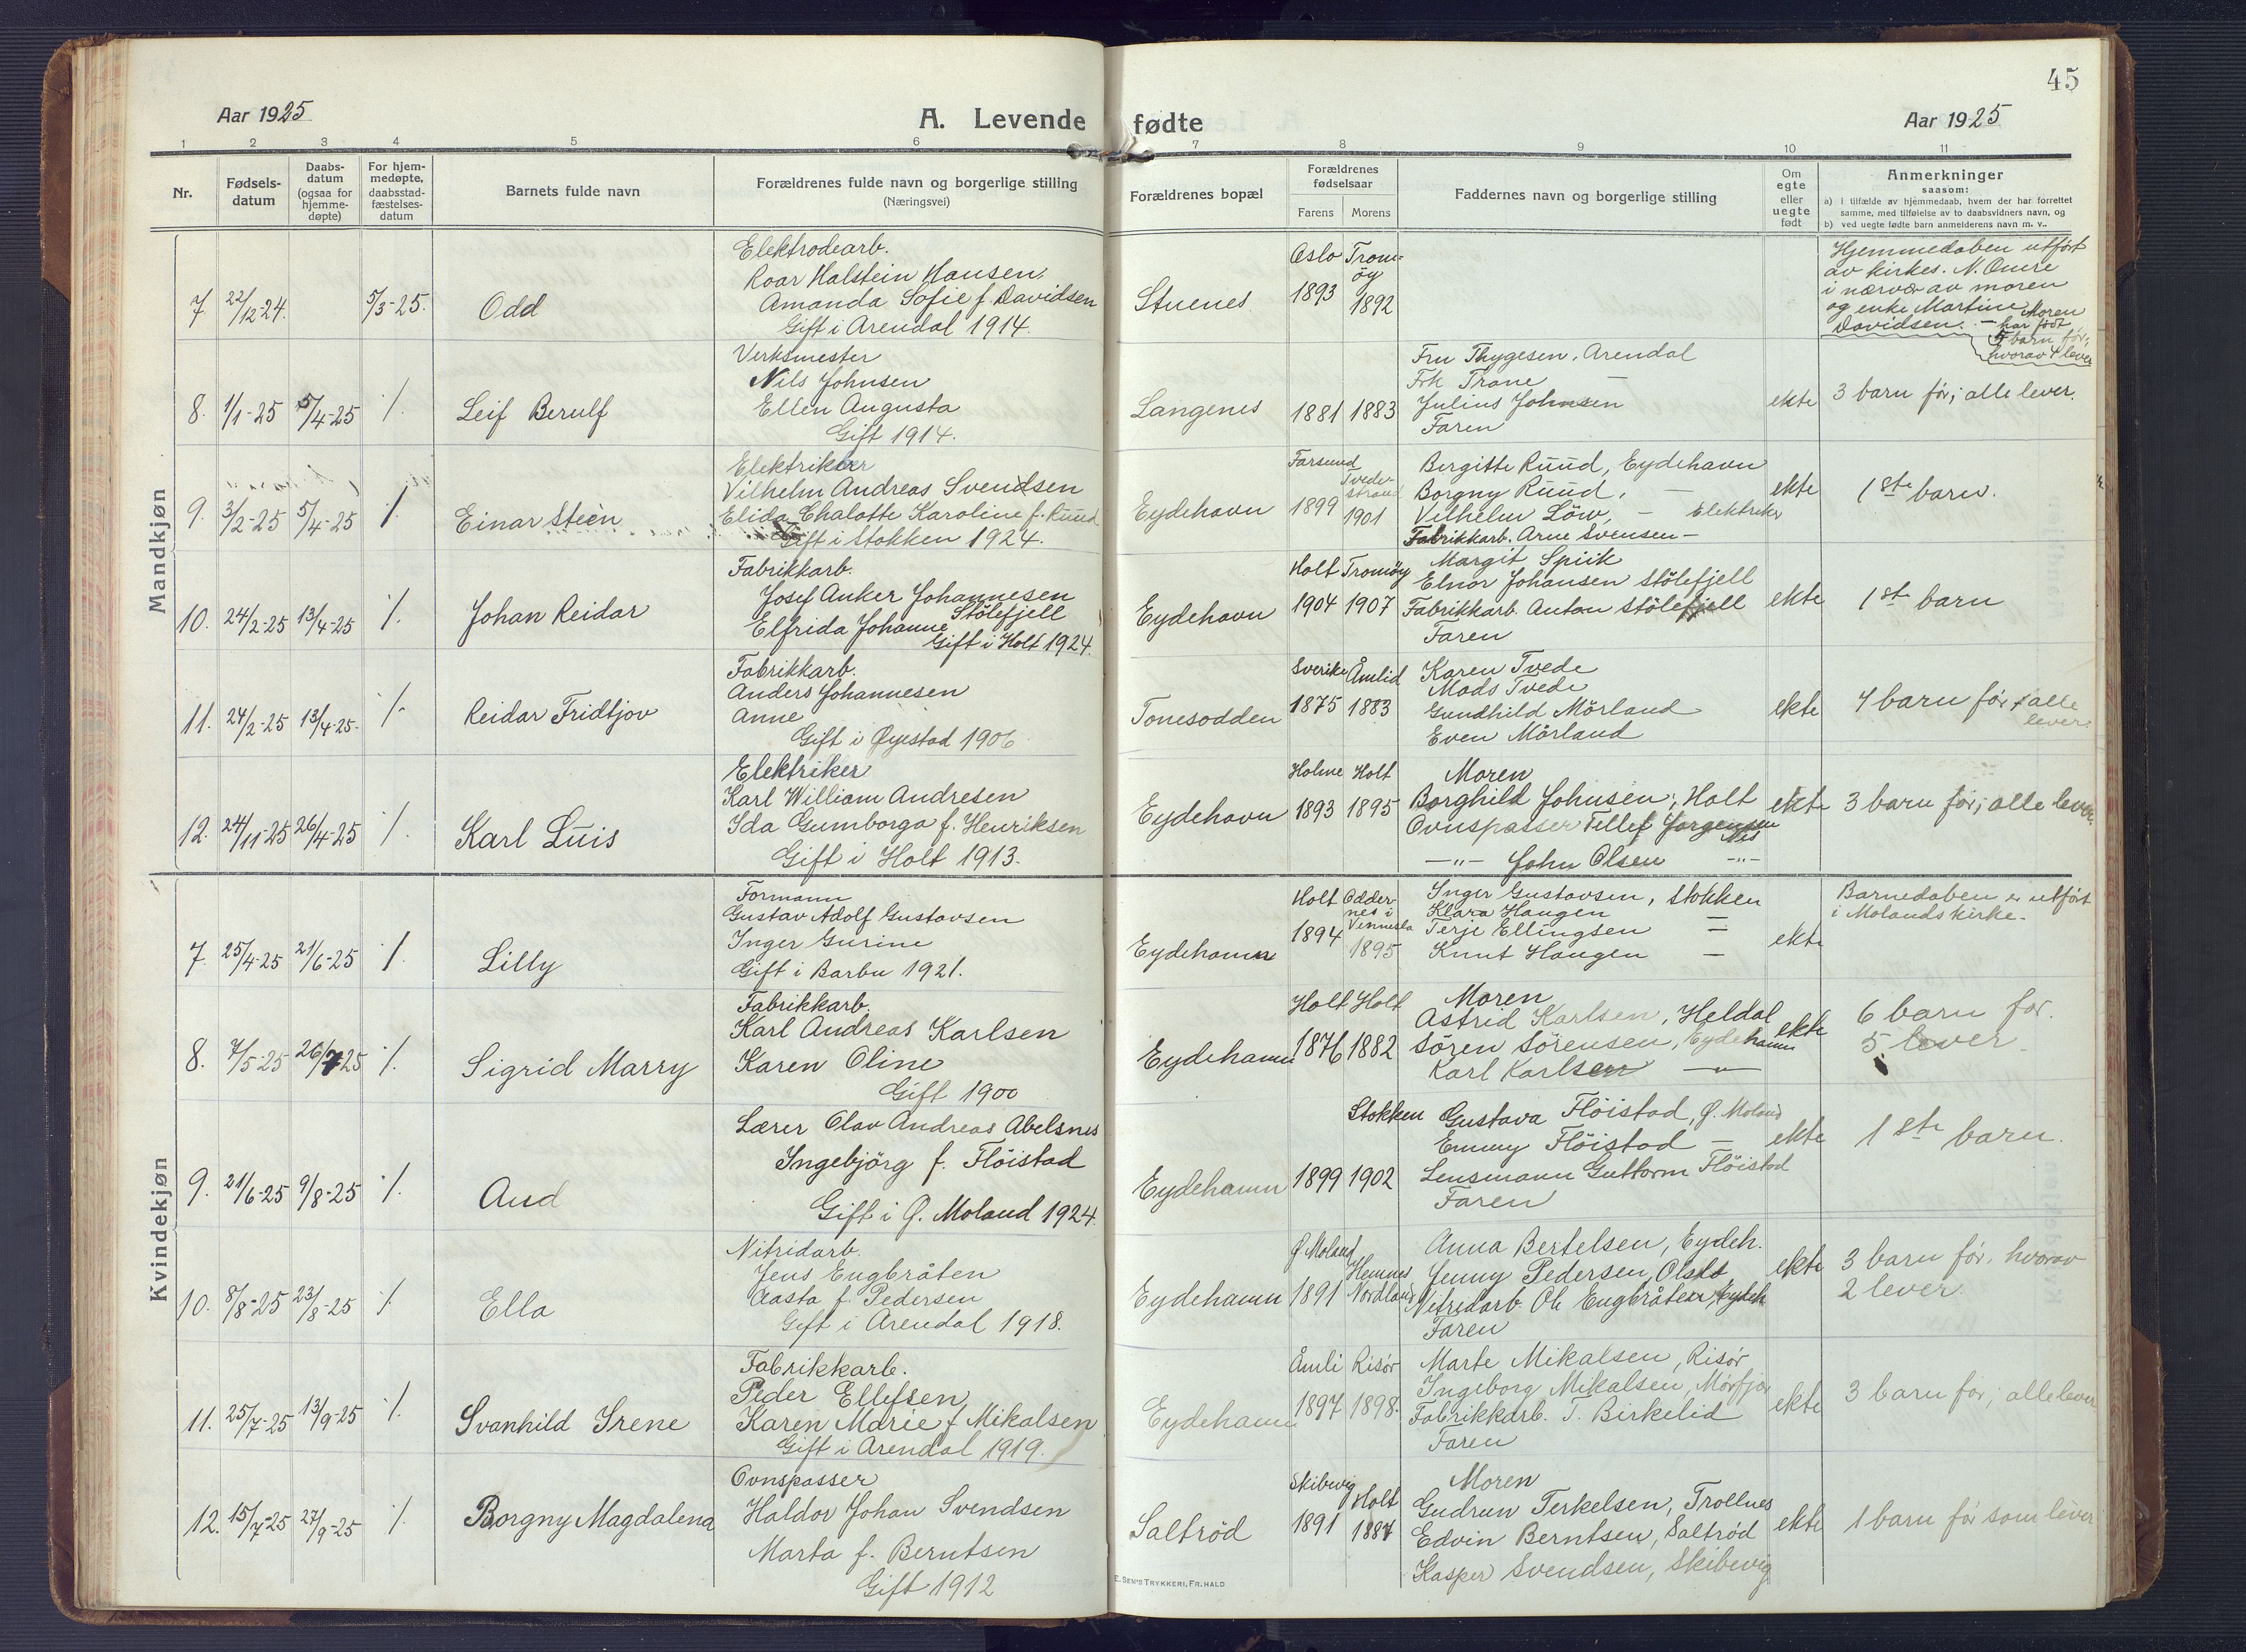 45
Aar 1925
A. Levende fødte
Aar 1925
1 2 3 4 5 6 7 8 9 10 11
Nr.
Fødsels-
datum
Daabs-
datum
(ogsaa for
hjemme-
døpte)
For hjem-
medøpte,
daabsstad-
fæstelses-
datum
Barnets fulde navn
Forældrenes fulde navn og borgerlige stilling
(Næringsvei)
Forældrenes bopæl
Forældrenes
fødselsaar
Farens Morens
Faddernes navn og borgerlige stilling
Om
egte
eller
uegte
født
Anmerkninger
saasom:
a) i tilfælde av hjemmedaab, hvem der har forrettet
samme, med tilføielse av to daabsvidners navn, og
b) ved uegte fødte barn anmelderens navn m. v..
Mandkjøn
7. 22/12-24. 5/3-25. Odd
Elektrodearb.
Roar Halstein Hansen,
Amanda Sofie f. Davidsen
Gift i Arendal 1914.
Stuenes
Oslo 1893
Trom-
öy
1892
Hjemmedaben utført
av kirkes. N. Quere
i nærvær av moren
og enke Martine
Davidsen. – Moren
har født
5 barn før,
hvorav 4 lever
8. 1/1-25 5/4-25 ./. Leif Berulf
Verksmester
Nils Johnsen
Ellen Augusta
Gift 1914.
Langenes
1881 1883
Fru Thygesen, Arendal
Frk Trane —
Julius Johnsen
Faren
ekte
3 barn før; alle lever.
9. 3/2-25 5/4-25 ./. Einar Steen
Elektriker
Vilhelm Andreas Svendsen
Elida Chalotte Karoline f. Ruud
Gift i Stokken 1924.
Eydehavn
Farsund
1899
Tvede-
strand
1901
Bergitte Ruud, Eydehavn
Borgny Ruud, —
Vilhelm Löw, — Elektriker
Fabrikkarb. Arne Svensen –
ekte
1ste barn.
10. 24/2-25 13/4-25 ./. Johan Reidar
Fabrikkarb.
Josef Anker Johannesen
Stölefjell
Elfrida Johanne
Gift i Holt 1924.
Eydehavn
Holt 1904
Tromöy 1907
Margit Spiik
Elnor Johansen Stölefjell
Fabrikkarb. Anton Stölefjell
Faren
ekte
1ste barn
11. 24/2-25 13/4-25. ./. Reidar Fridtjov
Fabrikkarb.
Anders Johannesen
Anne
Gift i Øyestad 1906
Tonesodden
Sverike 1875
Åmlid 1883
Karen Tvede
Mads Tvede
Gundhild Mörland
Even Mörland
ekte
4 barn før, alle
lever.
12. 24/11-25 26/4-25 ./. Karl Luis
Elektriker
Karl William Andresen
Ida Gumborga f. Henriksen
Gift i Holt 1913.
Eydehavn
Holme 1893
Holt 1895
Moren
Borghild Johnsen, Holt
Ovnspasser Tellef Jorgensen
Nes
—"— John Olsen —"—
ekte
3 barn før; alle lever.
Kvindekjøn
7. 25/4-25 21/6-25 ./. Lilly
Formann
Gustav Adolf Gustavsen
Inger Gurine
Gift i Barbu 1921.
Eydehamn
Holt 1894
Odder-
nes i
Vennesla
1895
Inger Gustavsen, Stokken
Klara Haugen —
Terje Ellingsen =
Knut Haugen —
ekte
Barnedaben er utført
i Molands kirke.
8. 7/5-25 26/7-25 ./. Sigrid Marry
Fabrikkarb.
Karl Andreas Karlsen
Karen Oline
Gift 1900
Eydehamn
Holt 1876
Holt 1882
Moren
Astrid Karlsen, Heldal
Sören Sörensen, Eydehamn
Karl Karlsen —"—
ekte
6 barn før.
5 lever
9. 21/6-25 9/8-25 ./. Aud
Lærer Olav Andreas Abelsnes
Ingebjörg f. Flöistad
Gift i Ø. Moland 1924.
Eydehamn
1899
Stokken 1902
Gustava Flöistad, Ø. Moland
Emmy Flöistad —
Lensmann Guttorm Flöistad
Faren
ekte
1ste barn.
10. 8/8-25 23/8-25 ./. Ella
Nitridarb.
Jens Engbråten
Aasta f. Pedersen
Gift i Arendal 1918.
Eydehamn
Ø Moland 1891
Hemnes
Nordland
Anna Bertelsen, Eydeh.
Jenny Pedersen, Oslo
Nitridarb. Ole Engbråten, Eydeh
Faren
ekte
3 barn før, hvorav
2 lever.
11. 25/7-25 13/9-25 ./. Svanhild Irene
Fabrikkarb.
Peder Ellefsen
Karen Marie f Mikalsen
Gift i Arendal 1919.
Eydehamn
Åmli 1897
Risör 1898.
Marte Mikalsen, Risör
Ingeborg Mikalsen, Mörfjær
Fabrikkarb. T. Birkelid
Faren
ekte
3 barn før; alle lever
12. 15/7-25 27/9-25 ./. Borgny Magdalena
Ovnspasser
Haldor Johan Svendsen
Marta f. Berntsen
Gift 1912
Saltröd
Skibevig 1891
Holt 1887
Moren
Gudrun Terkelsen, Trollnes
Edvin Berntsen, Saltröd
Kasper Svendsen, Skibevig
ekte
1 barn før som lever
E. SEM'S TRYKKERI, FR.HALD